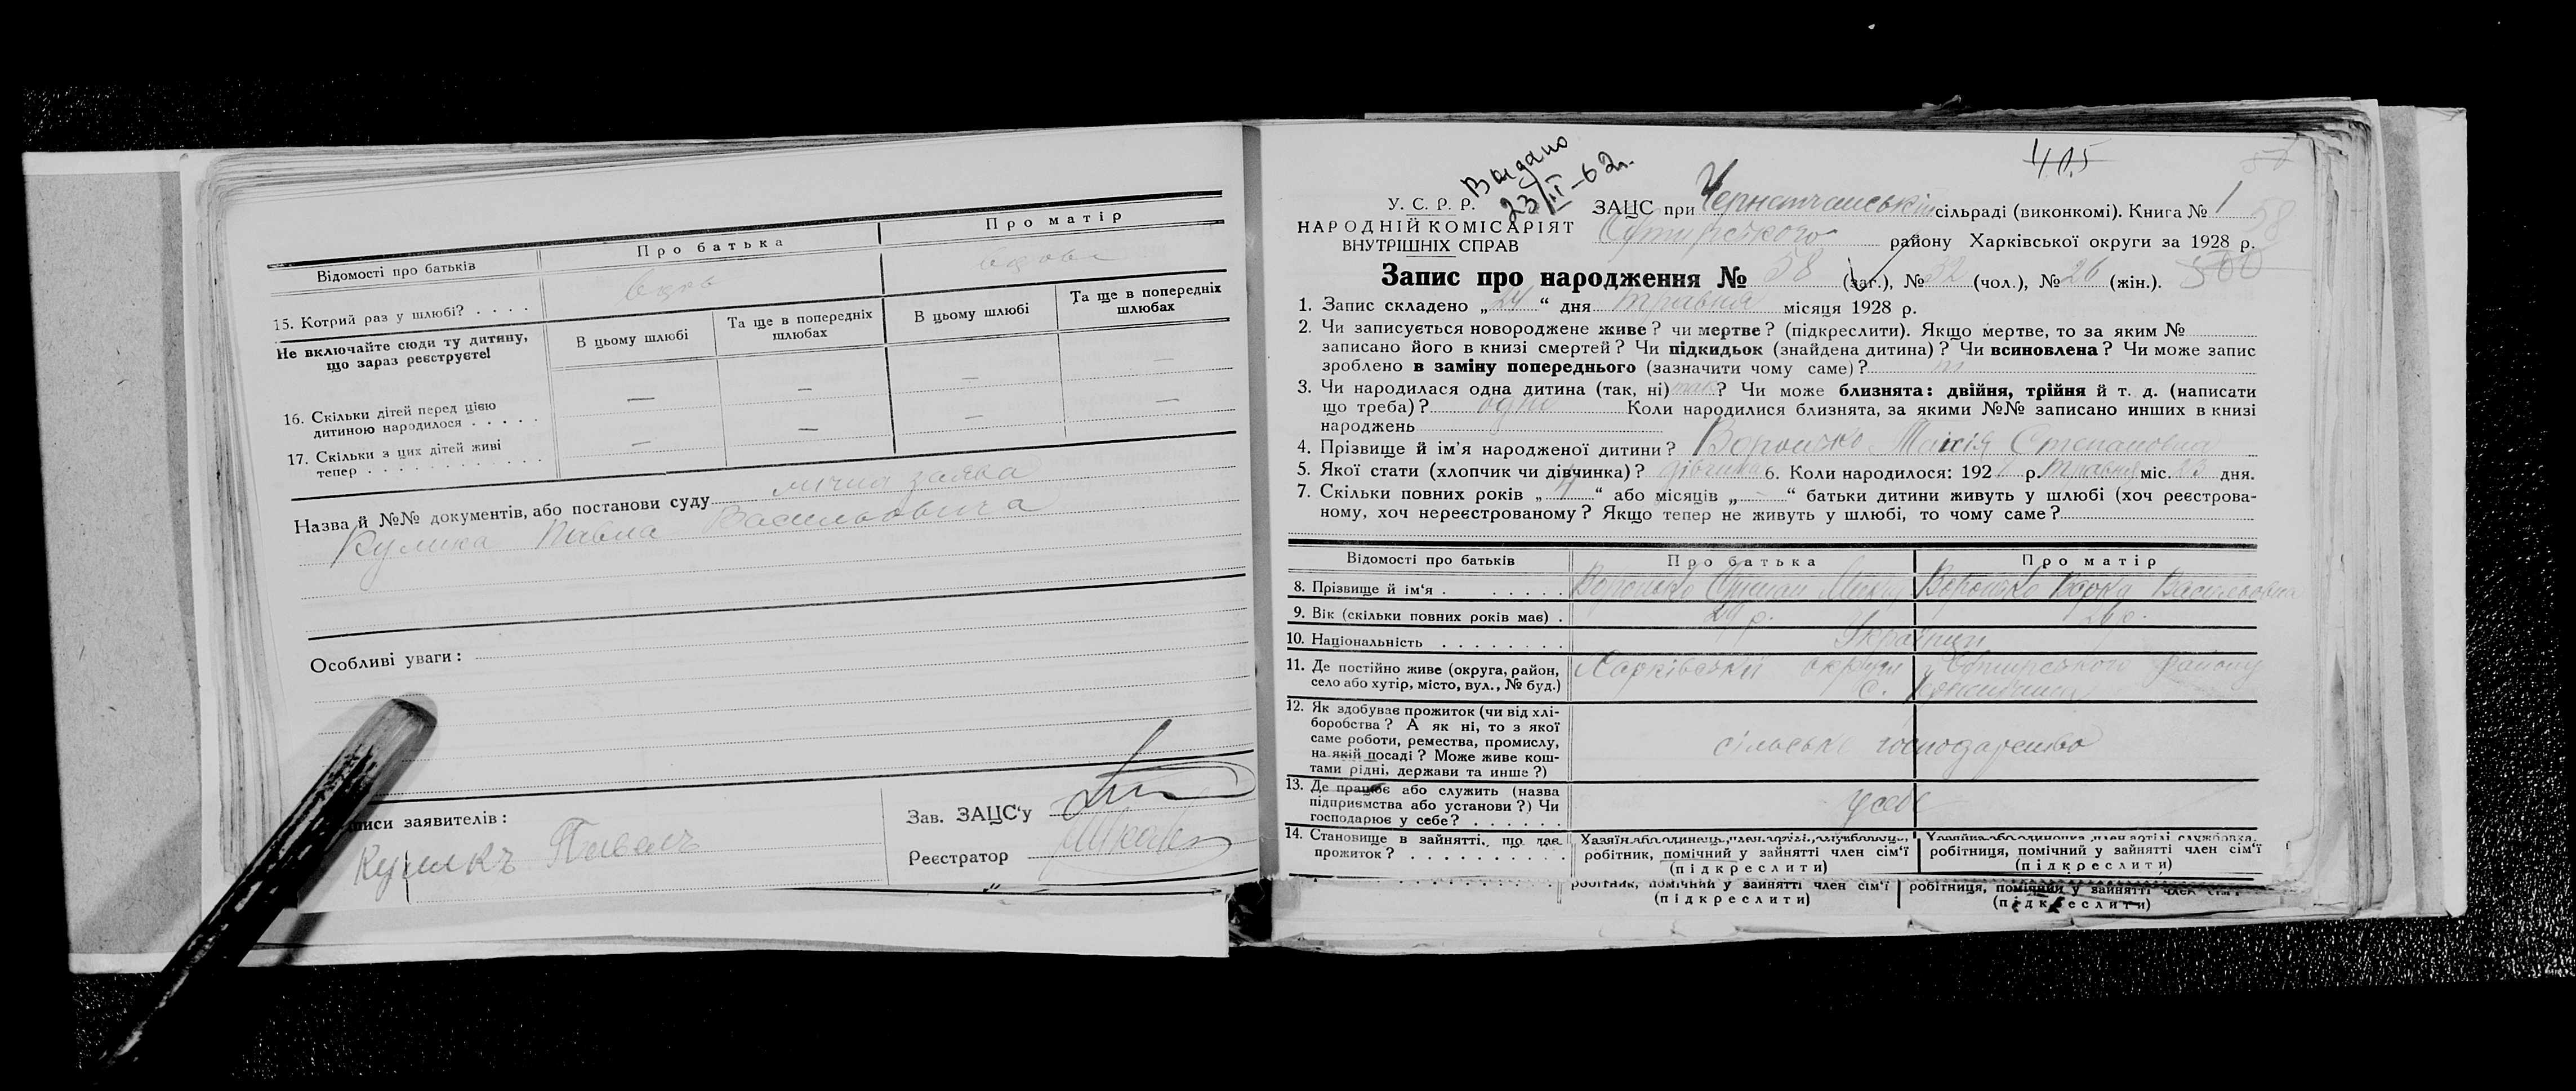 Відомості про батьків
Про батька
Про матір
15. Котрий раз у шлюбі? . . . .
Не включайте сюди ту дитину,
що зараз реєструєте!
В цьому шлюбі
Та ще в попередніх
шлюбах
В цьому шлюбі
Та ще в попередніх
шлюбах
16. Скільки дітей перед цією
дитиною народилося . . . . .
— — — —
17. Скільки з цих дітей живі
тепер . . . . . . . . . . . .
— — — —
Назва й №№ документів, або постанови суду
заява
Кулика Павла Васильовича
Особливі уваги:
писи заявителів:
Куликъ Павелъ
Зав. ЗАЦС'у
Реєстратор
405
Видано
23/III-62г.
У. С. Р. Р.
НАРОДНІЙ КОМІСАРІЯТ
ВНУТРІШНІХ СПРАВ
58
ЗАЦС при сільраді (виконкомі). Книга № 1
району Харківської округи за 1928 р.
500
Запис про народження № 58 (заг.), № 32 (чол.), № 26 (жін.).
1. Запис складено „24“ дня травня місяця 1928 р.
2. Чи записується новороджене живе? чи мертве? (підкреслити). Якщо мертве, то за яким №
записано його в книзі смертей? Чи підкидьок (знайдена дитина)? Чи всиновлена? Чи може запис
зроблено в заміну попереднього (зазначити чому саме)? ні
3. Чи народилася одна дитина (так, ні) так? Чи може близнята: двійня, трійня й т. д. (написати
що треба)? одне Коли народилися близнята, за якими №№ записано инших в книзі
народжень
4. Прізвище й ім'я народженої дитини? Воронько Таісія Степановна
5. Якої стати (хлопчик чи дівчинка)? дівчинка 6. Коли народилося: 1928 р. травня міс. 23 дня.
7. Скільки повних років „4“ або місяців „-“ батьки дитини живуть у шлюбі (хоч реєстрова-
ному, хоч нереєстрованому? Якщо тепер не живуть у шлюбі, то чому саме?
Відомості про батьків
Про батька
Про матір
8. Прізвище й ім'я . . . . . .
Воронько
Воронько Васильовна
9. Вік (скільки повних років має) .
29 р.
10. Національність . . . . . . . .
Українці
11. Де постійно живе (округа, район,
село або хутір, місто, вул., № буд.)
Харківській округи району
с.
12. Як здобуває прожиток (чи від хлі-
боробства? А як ні, то з якої
саме роботи, ремества, промислу,
на якій посаді? Може живе кош-
тами рідні, держави та инше?)
сільське господарство
13. Де працює або служить (назва
підприємства або установи?) Чи
господарює у себе? . . . . . .
у себе
14. Становище в зайнятті, що дає
прожиток? . . . . . . . . . .
Хазяїн або одинець, член артілі, службовець,
робітник, помічний у зайнятті член сім'ї
(підкреслити)
Хазяйка або одиночка, член артілі, службовка,
робітниця, помічний у зайнятті член сім'ї
(підкреслити)
робітник, помічний у зайнятті член сім'ї
(підкреслити)
робітниця, помічний у зайнятті член сім'ї
(підкреслити)